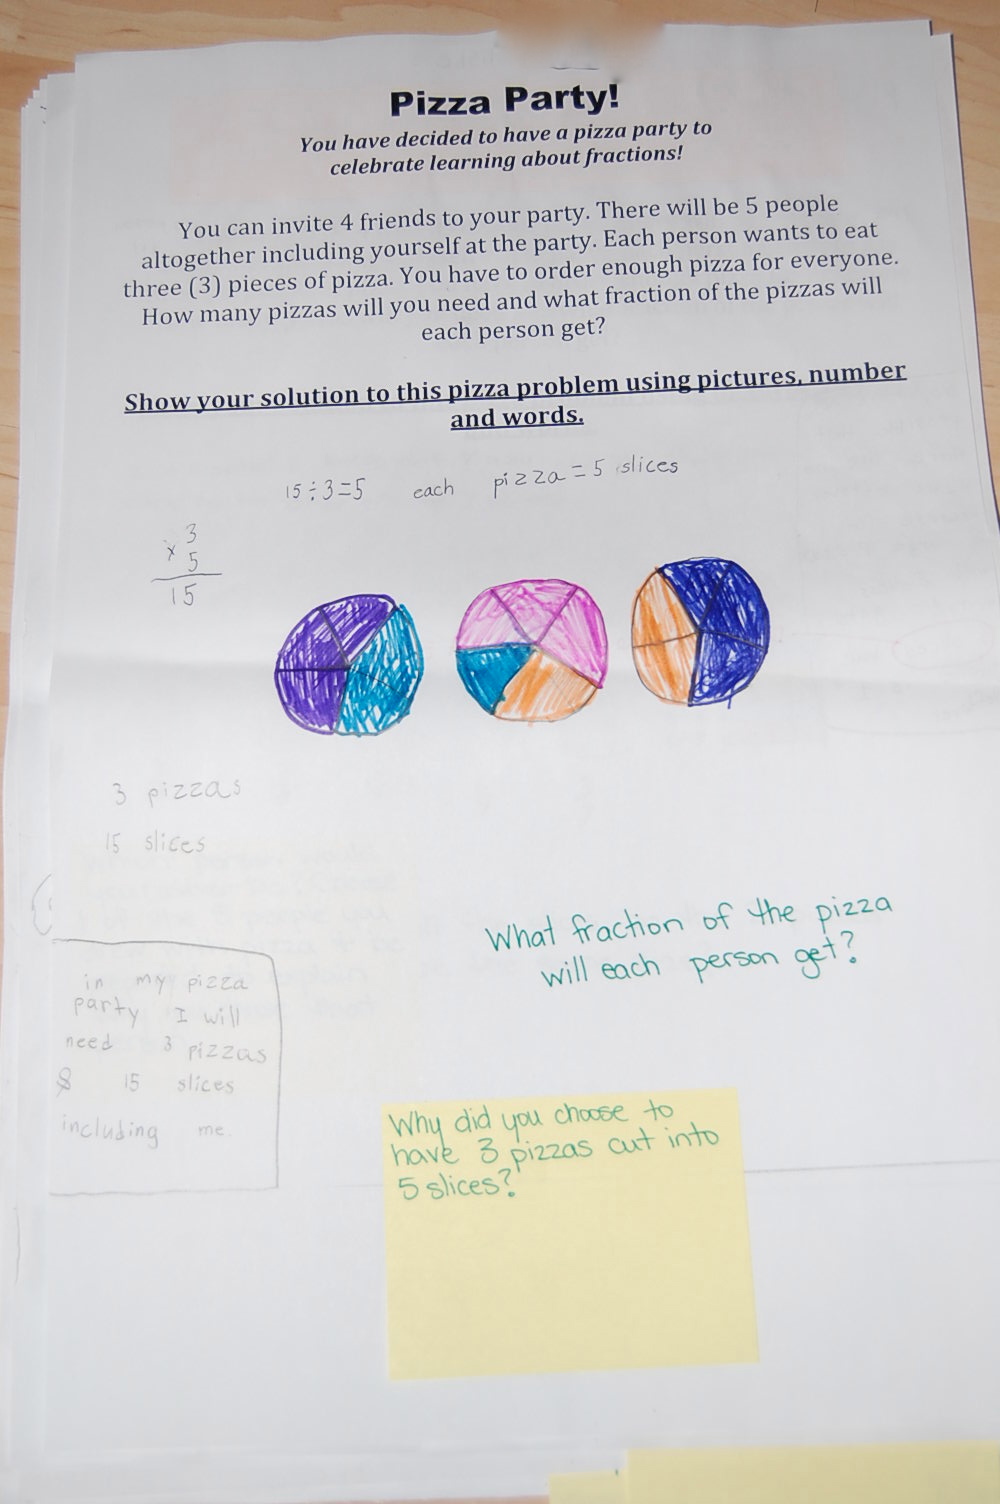 Pizza Party!
You have decided to have a pizza party to
celebrate learning about fractions!
You can invite 4 friends to your party. There will be 5 people
altogether including yourself at the party. Each person wants to eat
three (3) pieces of pizza. You have to order enough pizza for everyone.
How many pizzas will you need and what fraction of the pizzas will
each person get?
Show your solution to this pizza problem using pictures, number
and words.
15÷3=5 each pizza=5 slices
3
x 5
15
3 pizzas
15 slices
What fraction of the pizza
will each person get?
in my pizza
party I will
need 3 pizzas
& 15 slices
including me.
Why did you choose to
have 3 pizzas cut into
5 slices?